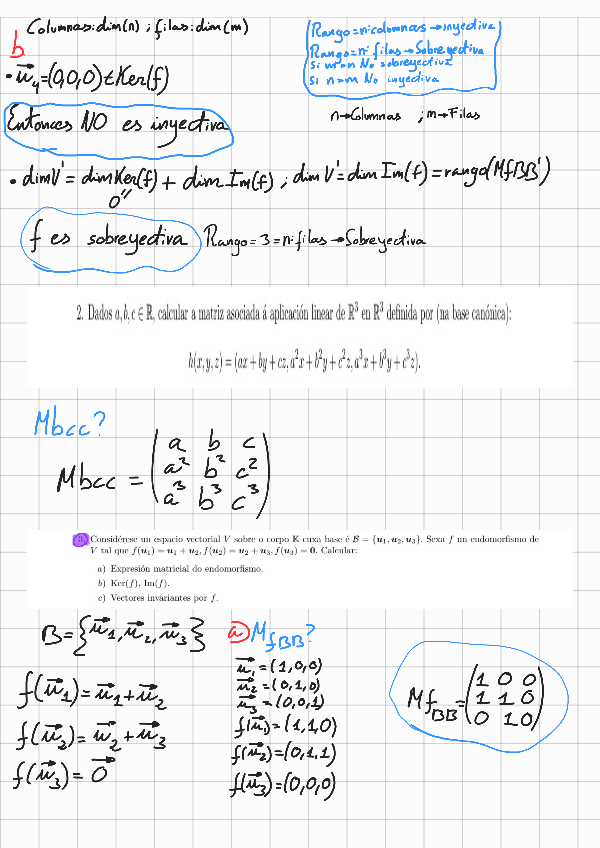 Columnas: dim(n) ; filas: dim(m)
Rango = nº columnas → inyectiva
Rango = nº filas → Sobreyectiva
Si m>n No sobreyectiva
Si n>m No inyectiva
n→Columnas ; m→Filas
b
• u₄ = (0,0,0) ∈ Ker(f)
Entonces NO es inyectiva
• dim V' = dim Ker(f) + dim Im(f) ; dim V' = dim Im(f) = rango(MfBB')
0''
f es sobreyectiva Rango = 3 = nº filas → Sobreyectiva
2. Dados a, b, c ∈ ℝ, calcular a matriz asociada á aplicación linear de ℝ³ en ℝ³ definida por (na base canónica):
h(x, y, z) = (ax + by + cz, a²x + b²y + c²z, a³x + b³y + c³z).
Mbcc?
Mbcc = (a b c
a² b² c²
a³ b³ c³)
3. Considérese un espacio vectorial V sobre o corpo 𝕂 cuxa base é B = {u₁, u₂, u₃}. Sexa f un endomorfismo de
V tal que f(u₁) = u₁ + u₂, f(u₂) = u₂ + u₃, f(u₃) = 0. Calcular:
a) Expresión matricial do endomorfismo.
b) Ker(f), Im(f).
c) Vectores invariantes por f.
B = {u₁, u₂, u₃}
f(u₁) = u₁ + u₂
f(u₂) = u₂ + u₃
f(u₃) = 0
a) MfBB?
u₁ = (1,0,0)
u₂ = (0,1,0)
u₃ = (0,0,1)
f(u₁) = (1,1,0)
f(u₂) = (0,1,1)
f(u₃) = (0,0,0)
MfBB = (1 0 0
1 1 0
0 1 0)